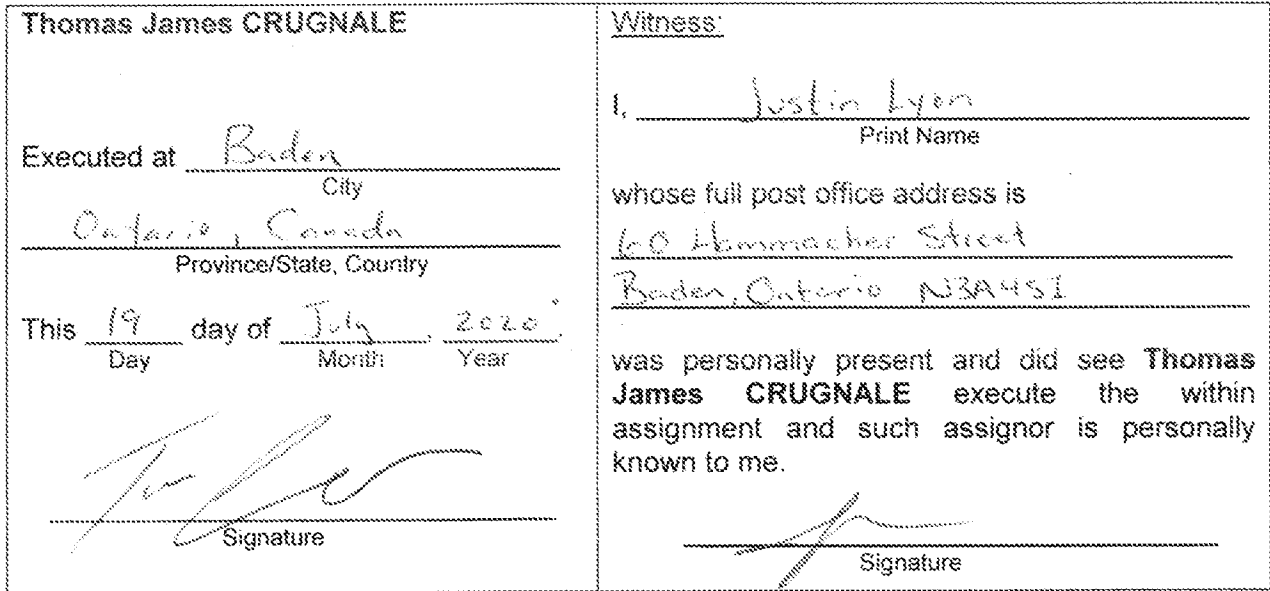 Thomas James CRUGNALE
Executed at Baden
City
Ontario, Canada
Province/State, Country
This 19 day of July, 2020.
Day Month Year
Signature
Witness:
I, Justin Lyon
Print Name
whose full post office address is
60 Hammacher Street
Baden, Ontario N3A4S1
was personally present and did see Thomas
James CRUGNALE execute the within
assignment and such assignor is personally
known to me.
Signature